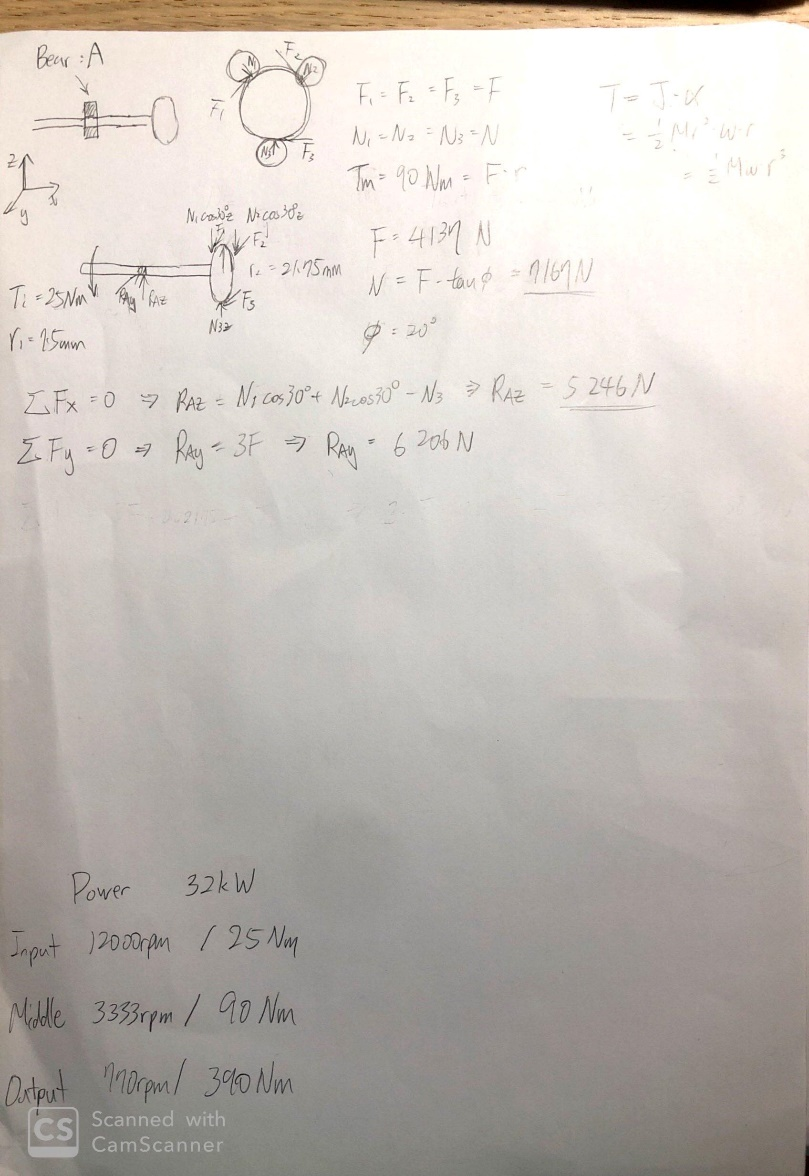 Bear : A
F₁
F₂
N₁
N₂
N₃
F₃
F₁ = F₂ = F₃ = F
N₁ = N₂ = N₃ = N
Tm = 90 Nm = F · r
T = J · α
= ½ Mr² · w · r
= ½ M w r³
z
x
y
N₁cos30°z N₂cos30°z
F₁
F₂
r₂ = 21.75mm
F₃
N₃z
T₁ = 25Nm
RAy RAZ
r₁ = 7.5mm
F = 4137 N
N = F · tanϕ = 7167N
ϕ = 20°
ΣFx = 0 ⇒ RAZ = N₁cos30° + N₂cos30° - N₃ ⇒ RAZ = 5246N
ΣFy = 0 ⇒ RAy = 3F ⇒ RAy = 6206N
Power 32kW
Input 12000rpm / 25 Nm
Middle 3333rpm / 90 Nm
Output 770rpm / 390 Nm
CS Scanned with
CamScanner